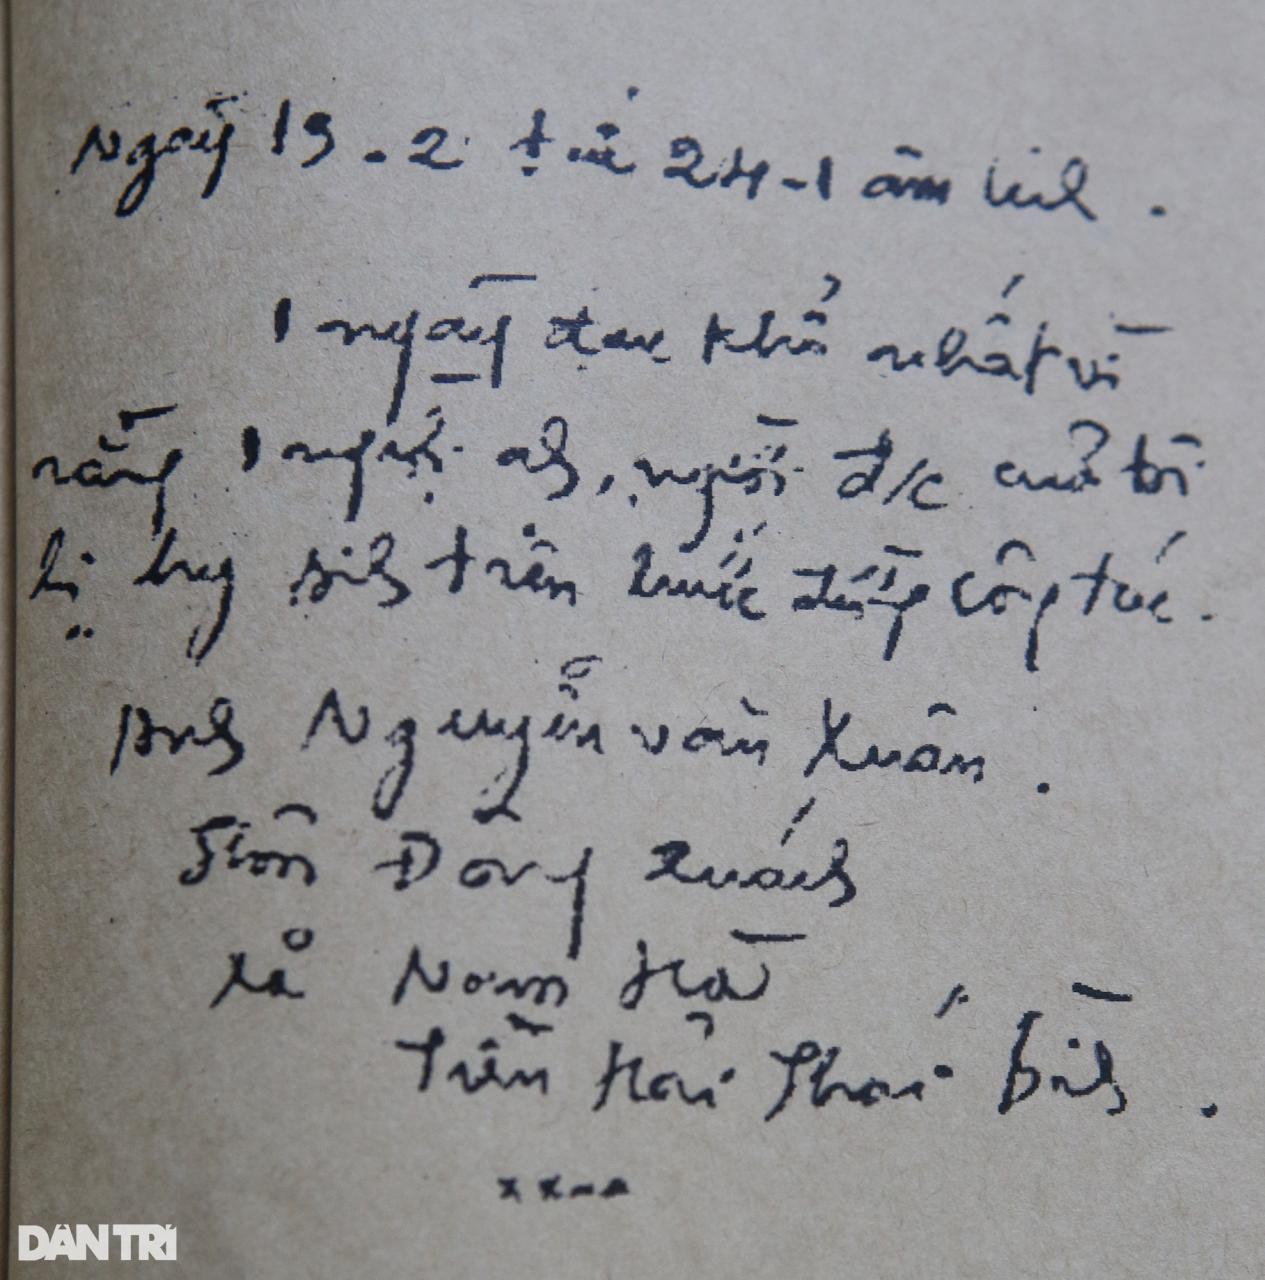 Ngày 13-2 tức 24-1 âm lịch.
1 ngày đau khổ nhất vì
rằng 1 người anh, người đ/c của tôi
hy sinh trên bước đường công tác.
Anh Nguyễn văn Xuân.
Thôn Đông Quách
xã Nam Hà
Tiền Hải Thái bình.
DÂN TRÍ